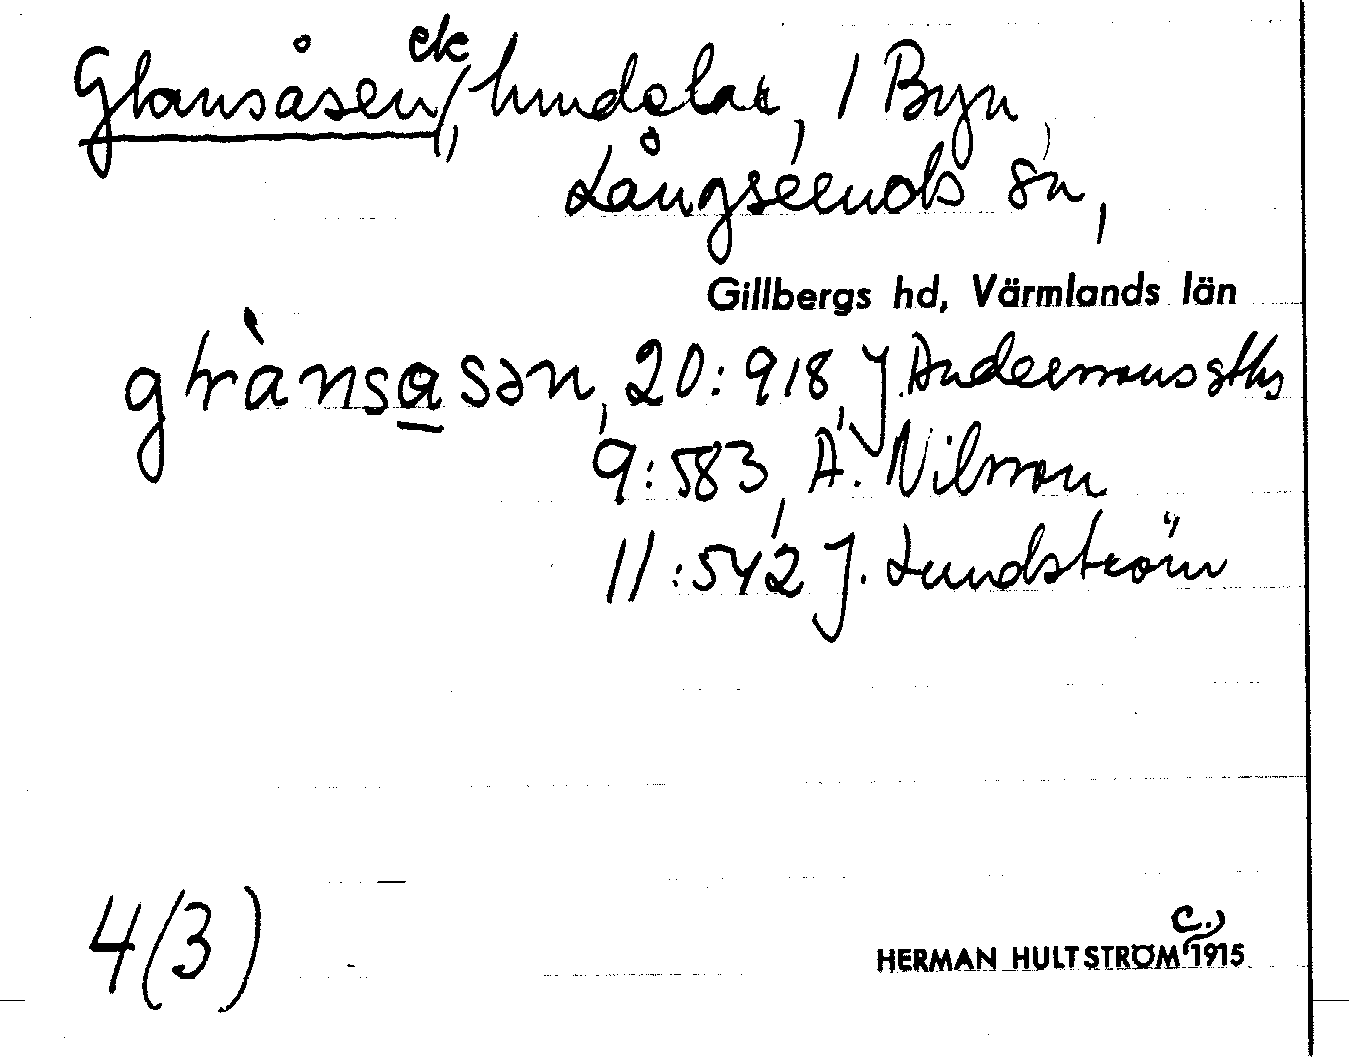 Glansåsen, ek hmdelar, 1 Byn,
Långseruds sn,
Gillbergs hd, Värmlands län
20:918, J. Anderssons sthg
9:583, A. Nilsson
11:542 J. Lundström
4(3)
HERMAN HULTSTRÖM C. 1915